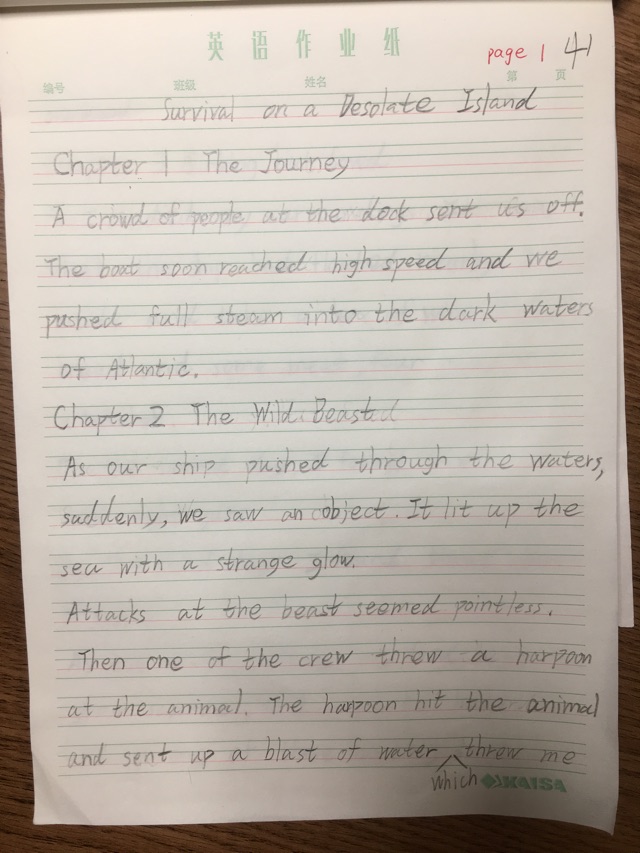 英语作业纸
page 1 41
编号 班级 姓名 第 页
Survival on a Desolate Island
Chapter 1 The Journey
A crowd of people at the dock sent us off.
The boat soon reached high speed and we
pushed full steam into the dark waters
of Atlantic.
Chapter 2 The Wild Beast
As our ship pushed through the waters,
suddenly, we saw an object. It lit up the
sea with a strange glow.
Attacks at the beast seemed pointless.
Then one of the crew threw a harpoon
at the animal. The harpoon hit the animal
and sent up a blast of water threw me
which KAISA